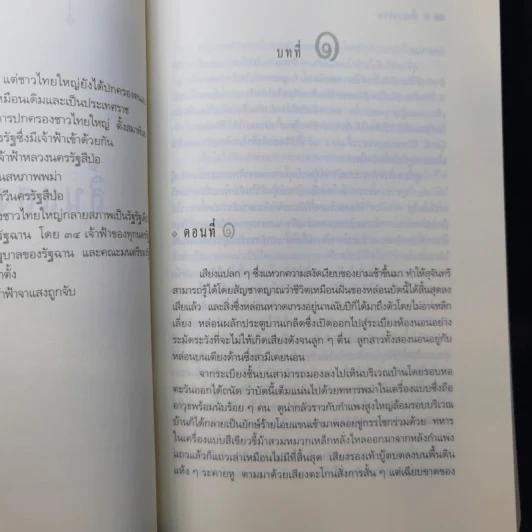 แต่ชาวไทยใหญ่ยังได้ปกครองตนเอง
เหมือนเดิมและเป็นประเทศราช
การปกครองชาวไทยใหญ่ ตั้งสมาพันธ
รัฐซึ่งมีเจ้าฟ้าเข้าด้วยกัน
เจ้าฟ้าหลวงนครรัฐสีป้อ
นสหภาพพม่า
ทวีนครรัฐสีป้อ
งชาวไทยใหญ่กลายสภาพเป็นรัฐรัฐ
รัฐฉาน โดย ๓๔ เจ้าฟ้าของทุกนครรัฐ
ฐบาลของรัฐฉาน และคณะมนตรี
าตั้ง
จ้าฟ้าจาแสงถูกจับ
บทที่ ๑
ตอนที่ ๑
เสียงแปลก ๆ ซึ่งแหวกความสงัดเงียบของยามเช้าขึ้นมา ทำให้สุจันทรี
สามารถรู้ได้โดยสัญชาตญาณว่าชีวิตเหมือนฝันของหล่อนบัดนี้ได้สิ้นสุดลง
เสียแล้ว และสิ่งซึ่งหล่อนหวาดเกรงอยู่นานนับปีก็ได้มาถึงตัวโดยไม่อาจหลีก
เลี่ยง หล่อนผลักประตูบานเกล็ดซึ่งเปิดออกไปสู่ระเบียงห้องนอนอย่าง
ระมัดระวังที่จะไม่ให้เกิดเสียงดังจนลูก ๆ ตื่น ลูกสาวทั้งสองนอนอยู่กับ
หล่อนบนเตียงด้านซึ่งสามีเคยนอน
จากระเบียงชั้นบนสามารถมองลงไปเห็นบริเวณบ้านโดยรอบหอ
ตะวันออกได้ถนัด ว่าบัดนี้เต็มแน่นไปด้วยทหารพม่าในเครื่องแบบซึ่งถือ
อาวุธพร้อมนับร้อย ๆ คน ดูน่ากลัวราวกับกำแพงสูงใหญ่ล้อมรอบบริเวณ
บ้านก็ได้กลายเป็นยักษ์ร้ายโอบแขนเข้ามาพลอยขู่กรรโชกร่วมด้วย ทหาร
ในเครื่องแบบสีเขียวขี้ม้าสวมหมวกเหล็กหลั่งไหลออกมาจากหลังกำแพง
แถวแล้วก็แถวเล่าเหมือนไม่มีที่สิ้นสุด เสียงรองเท้าบู๊ตบดลงบนพื้นดิน
แห้ง ๆ ระคายหู ตามมาด้วยเสียงตะโกนสั่งการสั้น ๆ แต่เฉียบขาดของ